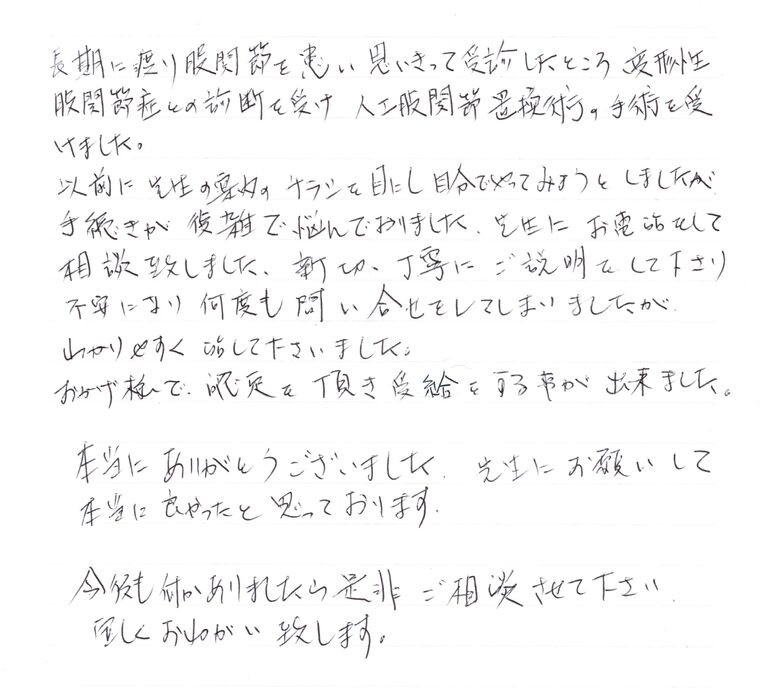 長期に渡り股関節を患い思いきって受診したところ 変形性
股関節症との診断を受け 人工股関節置換術の手術を受
けました。
以前に先生の案内のチラシを目にし自分でやってみようとしましたが
手続きが複雑で悩んでおりました、先生にお電話をして
相談致しました、親切、丁寧にご説明をして下さり
不安になり何度も問い合せをしてしまいましたが
わかりやすく話して下さいました。
おかげ様で、認定を頂き受給をする事が出来ました。
本当にありがとうございました、先生にお願いして
本当に良かったと思っております。
今後も何かありましたら是非ご相談させて下さい、
宜しくおねがい致します。